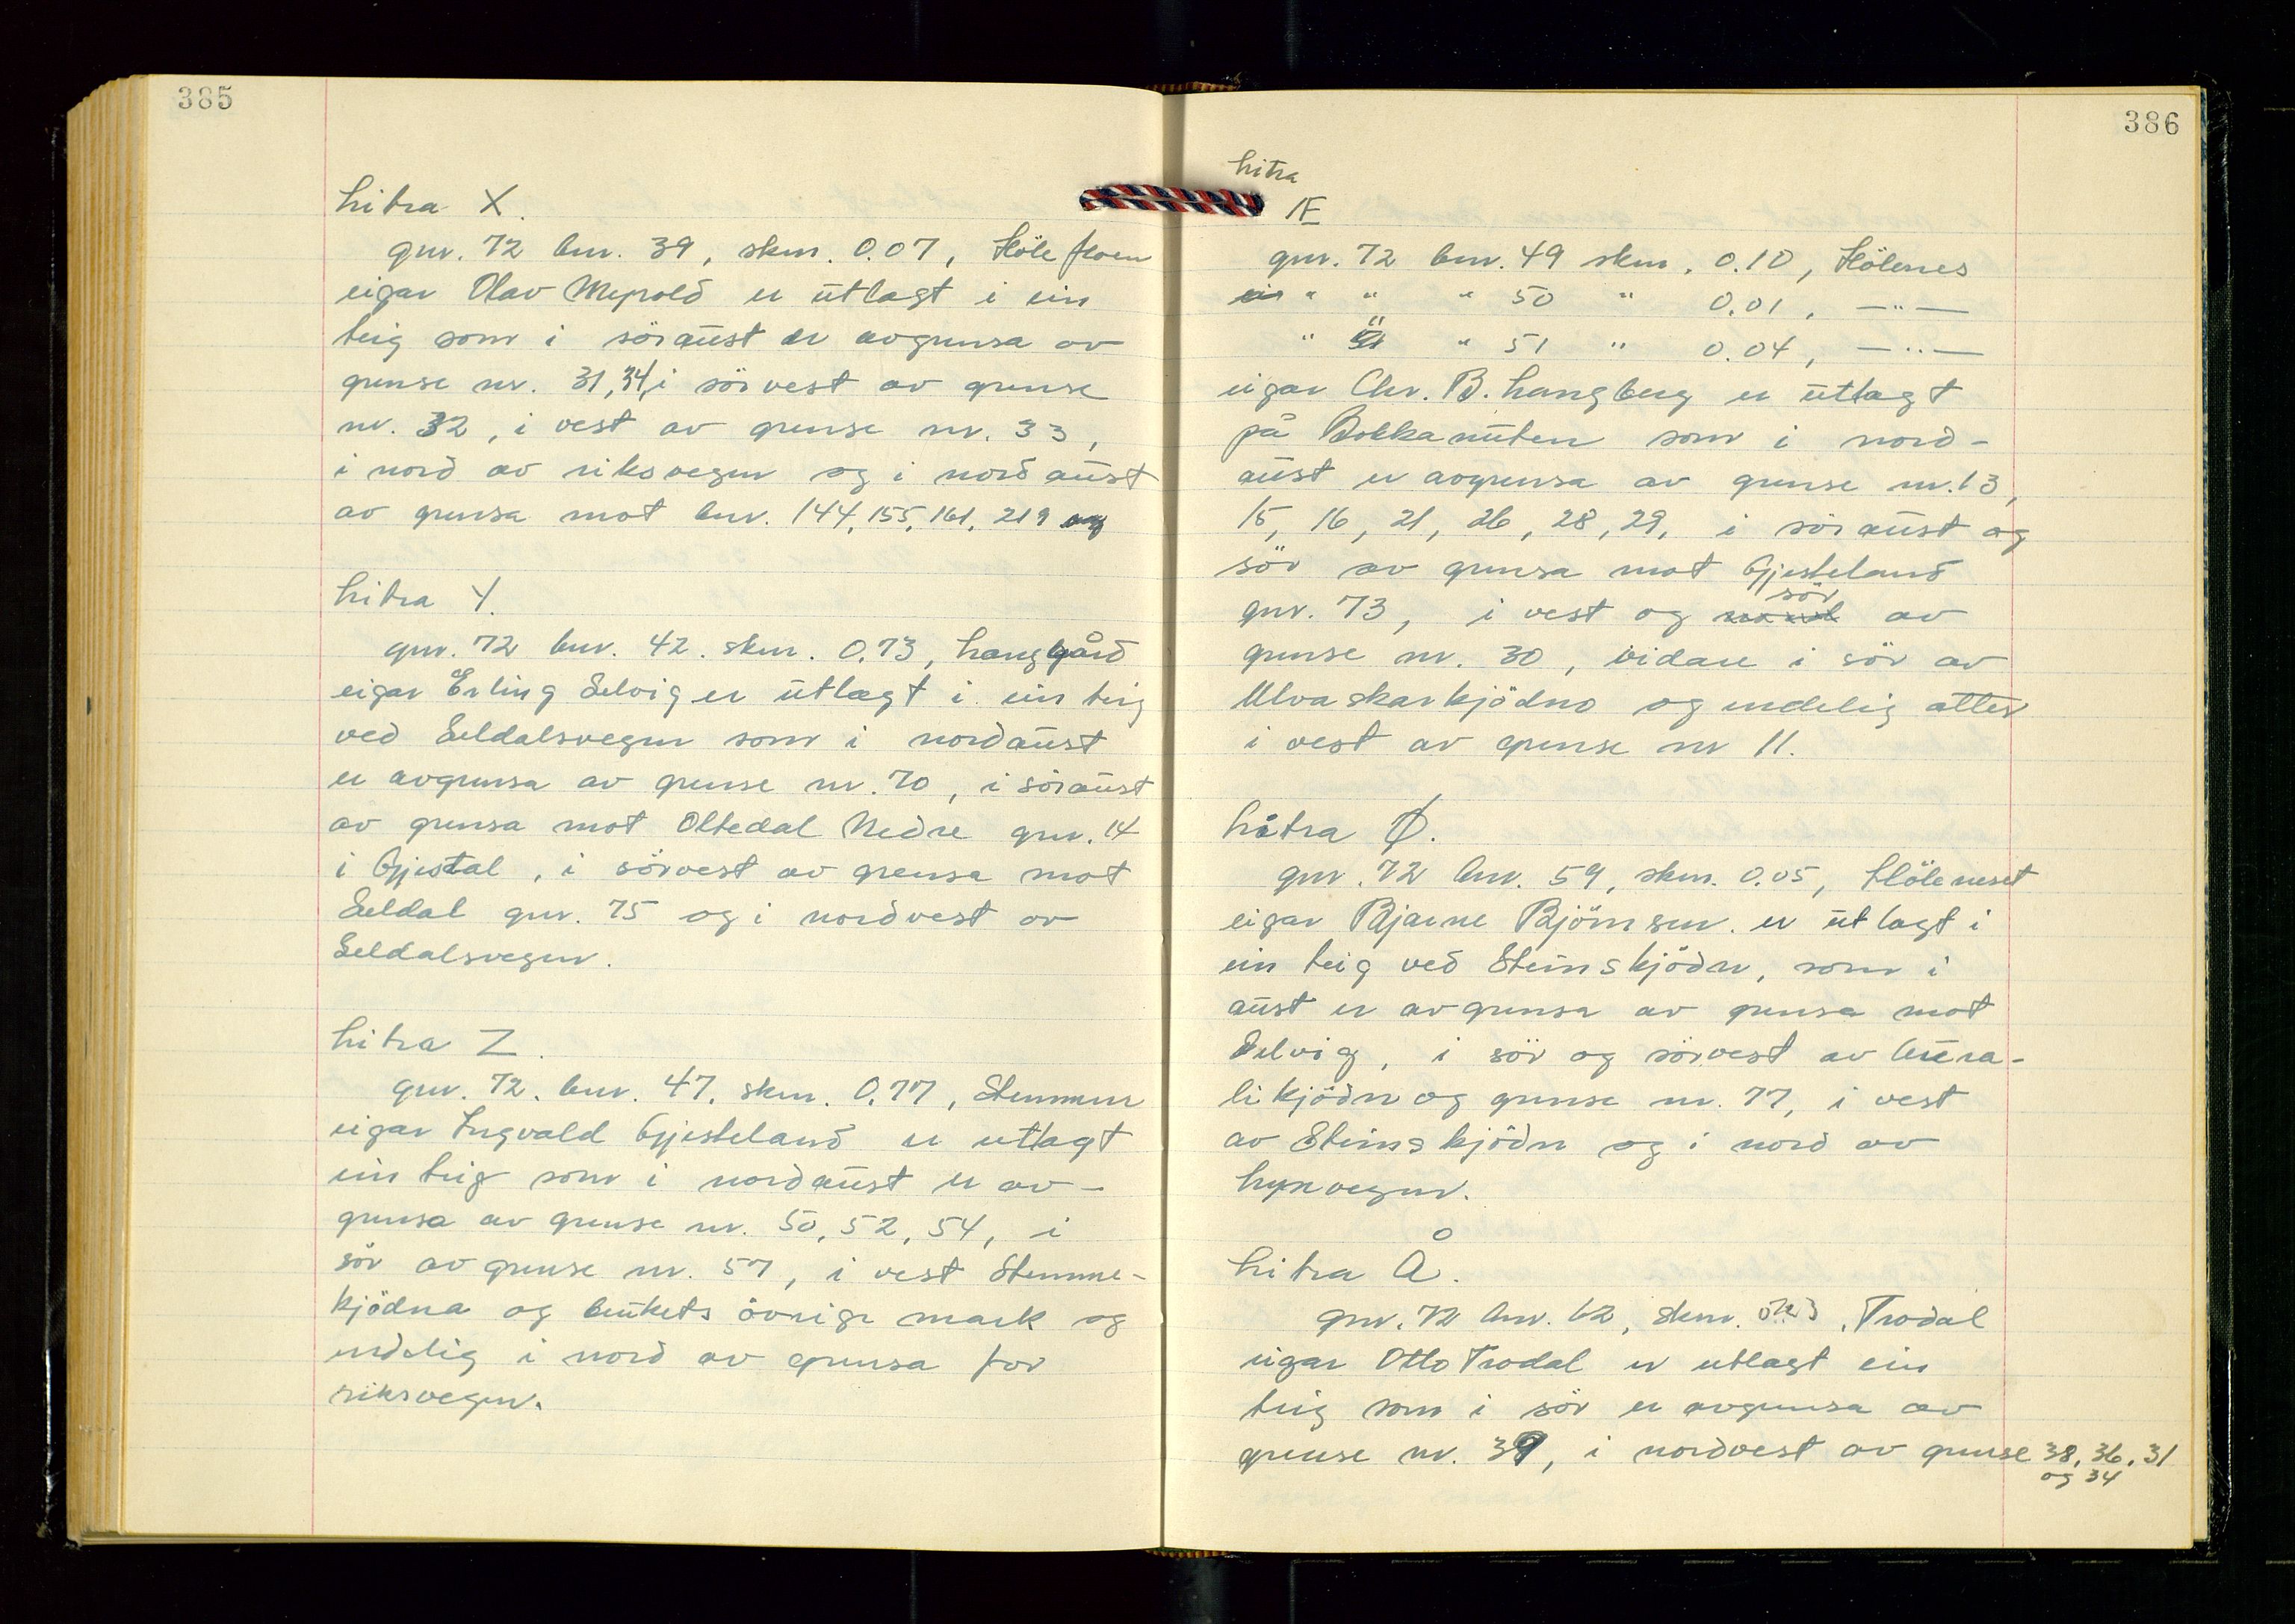 385
Litra X.
gnr. 72 bnr. 39, skm. 0.07, Høle
eigar Olav er utlagt i ein
teig som i søraust er avgrensa av
grense nr. 31, 34, i sørvest av grense
nr. 32, i vest av grense nr. 33,
i nord av riksvegen og i nordaust
av grensa mot bnr. 144, 155, 161, 219 og
Litra Y.
gnr. 72 bnr. 42. skm. 0.73, Langgård
eigar Erling Selvig er utlagt i ein teig
ved Seldalsvegen som i nordaust
er avgrensa av grense nr. 70, i søraust
av grensa mot Oltedal Nedre gnr. 14
i Gjestal, i sørvest av grensa mot
Seldal gnr. 75 og i nordvest av
Seldalsvegen.
Litra Z.
gnr. 72. bnr. 47. skm. 0.77, Stemmen
eigar Ingvald Gjesteland er utlagt
ein teig som i nordaust er av-
grensa av grense nr. 50, 52, 54, i
sør av grense nr. 57, i vest Stemme-
kjødna og brukets øvrige mark og
endelig i nord av grensa for
riksvegen.
386
Litra
Æ
gnr. 72 bnr. 49 skm. 0.10, Hölenes
" " " 50 " 0.01, —"—
" " " 51 " 0.04, —"—
eigar Chr. B. Langberg er utlagt
på Bokkanuten som i nord-
aust er avgrensa av grense nr. 13,
15, 16, 21, 26, 28, 29, i søraust og
sør av grensa mot Gjesteland
gnr. 73, i vest og nord sør av
grense nr. 30, vidare i sør av
Ulvaskarkjødno og endelig atter
i vest av grense nr 11.
Litra Ø.
gnr. 72 bnr. 59, skm. 0.05, Höleneset
eigar Bjarne Bjørnsen. er utlagt i
ein teig ved Steinskjødn, som i
aust er avgrensa av grensa mot
Selvig, i sør og sørvest av
likjødn og grense nr. 77, i vest
av Steinskjødn og i nord av
Lynvegen.
Litra Å.
gnr. 72 bnr. 62, skm. , Trodal
eigar Otto Trodal er utlagt ein
teig som i sør er avgrensa av
grense nr. 39, i nordvest av grense 38, 36, 31
og 34